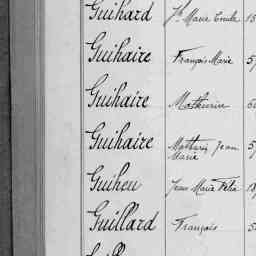 Guihard Jh Marie Emile 15
Guihaire François Marie 57
Guihaire Mathurin
Guihaire Mathurin Jean
Marie 57
Guiheu Jean Marie Félix
Guillard François